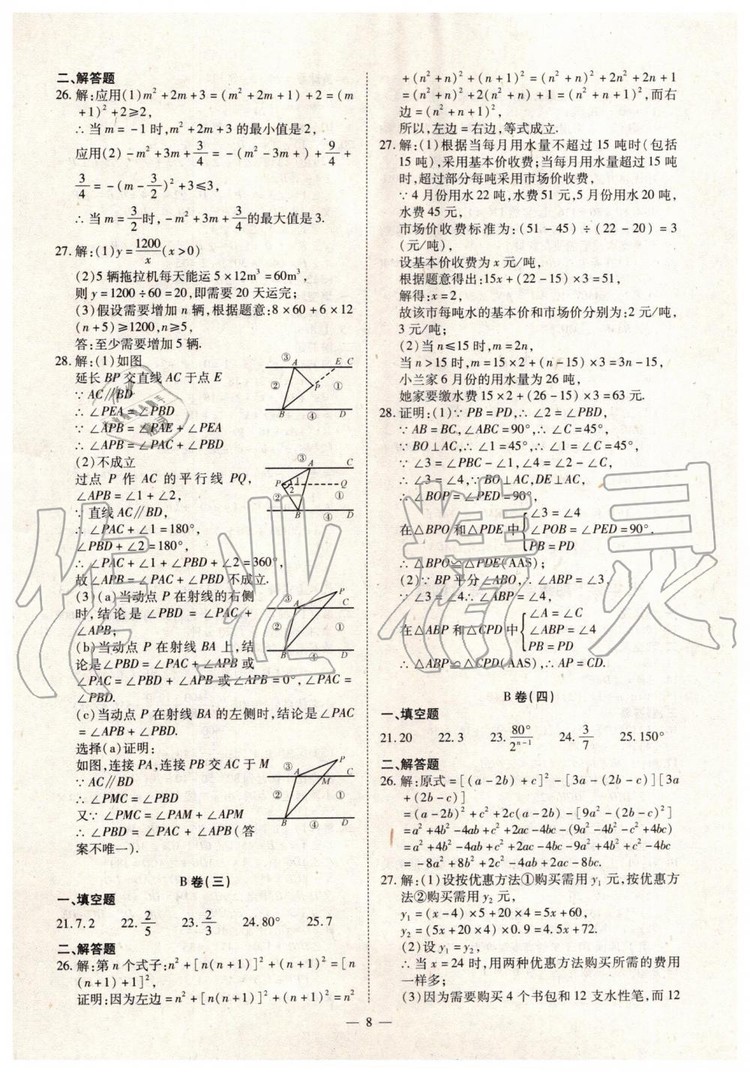 二、解答题
26.解:应用(1)m²+2m+3=(m²+2m+1)+2=(m
+1)²+2≥2,
∴当m=-1时,m²+2m+3的最小值是2,
应用(2)-m²+3m+3/4=-(m²-3m+9/4)+9/4+
3/4=-(m-3/2)²+3≤3,
∴当m=3/2时,-m²+3m+3/4的最大值是3.
27.解:(1)y=1200/x(x>0)
(2)5辆拖拉机每天能运5×12m³=60m³,
则y=1200÷60=20,即需要20天运完;
(3)假设需要增加n辆,根据题意:8×60+6×12
(n+5)≥1200,n≥5,
答:至少需要增加5辆.
28.解:(1)如图
延长BP交直线AC于点E
∵AC∥BD
∴∠PEA=∠PBD
∵∠APB=∠PAE+∠PEA
∴∠APB=∠PAC+∠PBD
(2)不成立
过点P作AC的平行线PQ,
∠APB=∠1+∠2,
∵直线AC∥BD,
∴∠PAC+∠1=180°,
∠PBD+∠2=180°,
∴∠PAC+∠1+∠PBD+∠2=360°,
故∠APB=∠PAC+∠PBD不成立.
(3)(a)当动点P在射线的右侧
时,结论是∠PBD=∠PAC+
∠APB;
(b)当动点P在射线BA上,结
论是∠PBD=∠PAC+∠APB或
∠PAC=∠PBD+∠APB或∠APB=0°,∠PAC=
∠PBD.
(c)当动点P在射线BA的左侧时,结论是∠PAC
=∠APB+∠PBD.
选择(a)证明:
如图,连接PA,连接PB交AC于M
∵AC∥BD
∴∠PMC=∠PBD
又∵∠PMC=∠PAM+∠APM
∴∠PBD=∠PAC+∠APB(答
案不唯一).
③ A E C
② P ①
B ④ D
③ A C
P 1 2 Q
② ①
B ④ D
③ A P C
② ①
B ④ D
③ A M P C
② ①
B ④ D
B卷(三)
一、填空题
21.7.2 22.2/5 23.2/3 24.80° 25.7
二、解答题
26.解:第n个式子:n²+[n(n+1)]²+(n+1)²=[n
(n+1)+1]²,
证明:因为左边=n²+[n(n+1)]²+(n+1)²=n²
+(n²+n)²+(n+1)²=(n²+n)²+2n²+2n+1
=(n²+n)²+2(n²+n)+1=(n²+n+1)²,而右
边=(n²+n+1)²,
所以,左边=右边,等式成立.
27.解:(1)根据当每月用水量不超过15吨时(包括
15吨),采用基本价收费;当每月用水量超过15吨
时,超过部分每吨采用市场价收费,
∵4月份用水22吨,水费51元,5月份用水20吨,
水费45元,
市场价收费标准为:(51-45)÷(22-20)=3
(元/吨),
设基本价收费为x元/吨,
根据题意得出:15x+(22-15)×3=51,
解得:x=2,
故该市每吨水的基本价和市场价分别为:2元/吨,
3元/吨;
(2)当n≤15时,m=2n,
当n>15时,m=15×2+(n-15)×3=3n-15,
小兰家6月份的用水量为26吨,
她家要缴水费15×2+(26-15)×3=63元.
28.证明:(1)∵PB=PD,∴∠2=∠PBD,
∵AB=BC,∠ABC=90°,∴∠C=45°,
∵BO⊥AC,∴∠1=45°,∴∠1=∠C=45°,
∵∠3=∠PBC-∠1,∠4=∠2-∠C,
∴∠3=∠4,∵BO⊥AC,DE⊥AC,
∴∠BOP=∠PED=90°,
在△BPO和△PDE中{∠3=∠4
∠POB=∠PED=90°
PB=PD
∴△BPO≌△PDE(AAS);
(2)∵BP平分∠ABO,∴∠ABP=∠3,
∵∠3=∠4,∴∠ABP=∠4,
在△ABP和△CPD中{∠A=∠C
∠ABP=∠4
PB=PD
∴△ABP≌△CPD(AAS),∴AP=CD.
B卷(四)
一、填空题
21.20 22.3 23.80°/2ⁿ⁻¹ 24.3/7 25.150°
二、解答题
26.解:原式=[(a-2b)+c]²-[3a-(2b-c)][3a
+(2b-c)]
=(a-2b)²+c²+2c(a-2b)-[9a²-(2b-c)²]
=a²+4b²-4ab+c²+2ac-4bc-(9a²-4b²-c²+4bc)
=a²+4b²-4ab+c²+2ac-4bc-9a²+4b²+c²-4bc
=-8a²+8b²+2c²-4ab+2ac-8bc.
27.解:(1)设按优惠方法①购买需用y₁元,按优惠
方法②购买需用y₂元,
y₁=(x-4)×5+20×4=5x+60,
y₂=(5x+20×4)×0.9=4.5x+72.
(2)设y₁=y₂,
∴当x=24时,用两种优惠方法购买所需的费用
一样多;
(3)因为需要购买4个书包和12支水性笔,而12
— 8 —
作业精灵